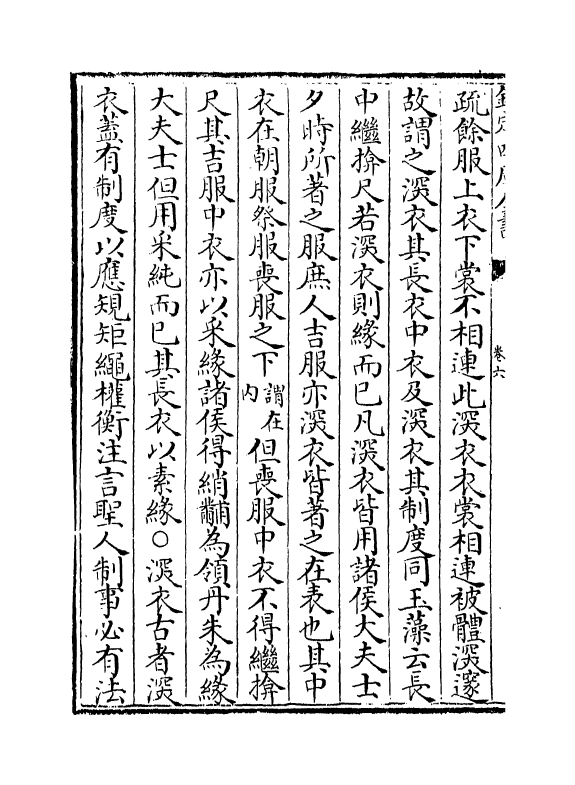 欽定四庫全書
卷六
疏餘服上衣下裳不相連此深衣衣裳相連被體深邃
故謂之深衣其長衣中衣及深衣其制度同玉藻云長
中繼揜尺若深衣則緣而已凡深衣皆用諸侯大夫士
夕時所著之服庶人吉服亦深衣皆著之在表也其中
衣在朝服祭服喪服之下謂在内但喪服中衣不得繼揜
尺其吉服中衣亦以采緣諸侯得綃黼為領丹朱為緣
大夫士但用采純而已其長衣以素緣○深衣古者深
衣蓋有制度以應規矩繩權衡注言聖人制事必有法